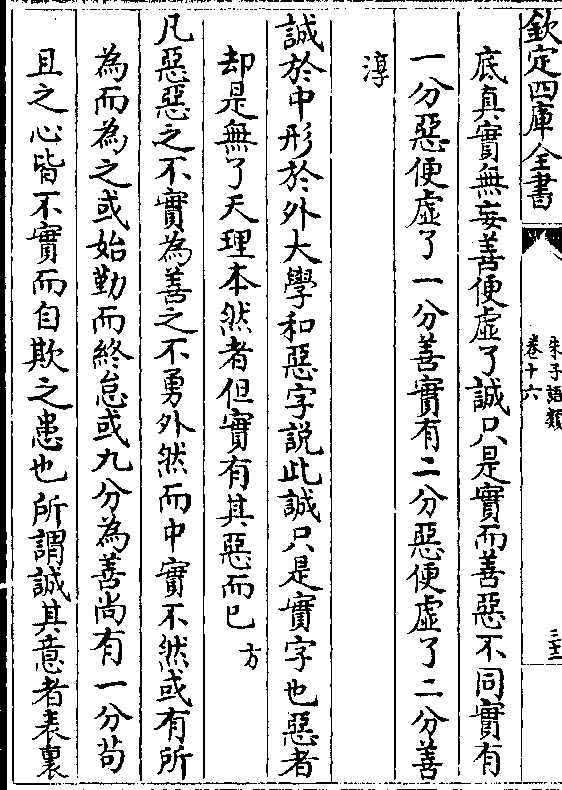 欽定四庫全書
朱子語類
卷十六
三十三
底真實無妄善便虛了誠只是實而善惡不同實有
一分惡便虛了一分善實有二分惡便虛了二分善
淳
誠於中形於外大學和惡字說此誠只是實字也惡者
却是無了天理本然者但實有其惡而已方
凡惡惡之不實為善之不勇外然而中實不然或有所
為而為之或始勤而終怠或九分為善尚有一分茍
且之心皆不實而自欺之患也所謂誠其意者表裏